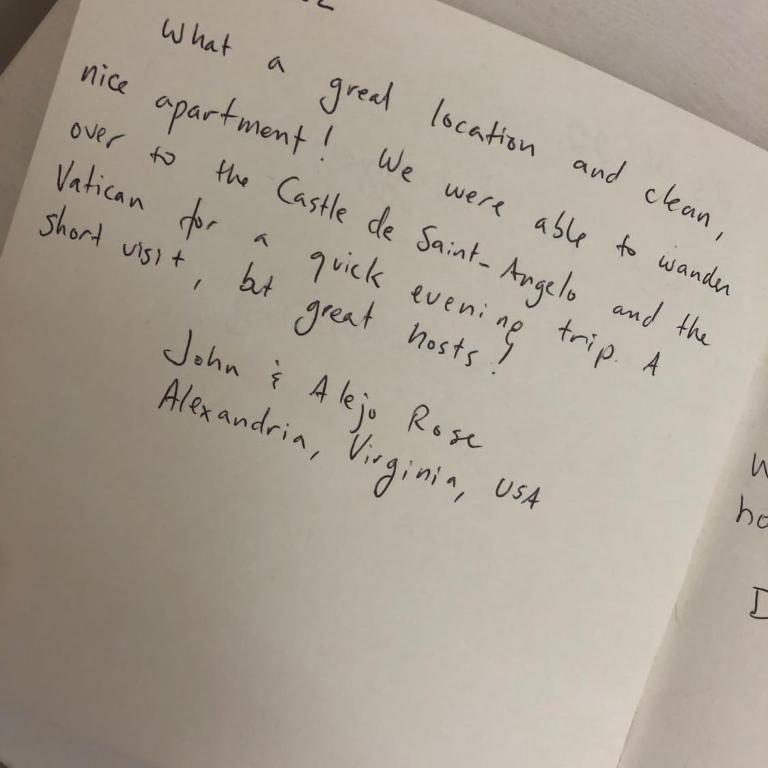 What a great location and clean,
nice apartment! We were able to wander
over to the Castle de Saint-Angelo and the
Vatican for a quick evening trip. A
short visit, but great hosts!
John & Alejo Rose
Alexandria, Virginia, USA